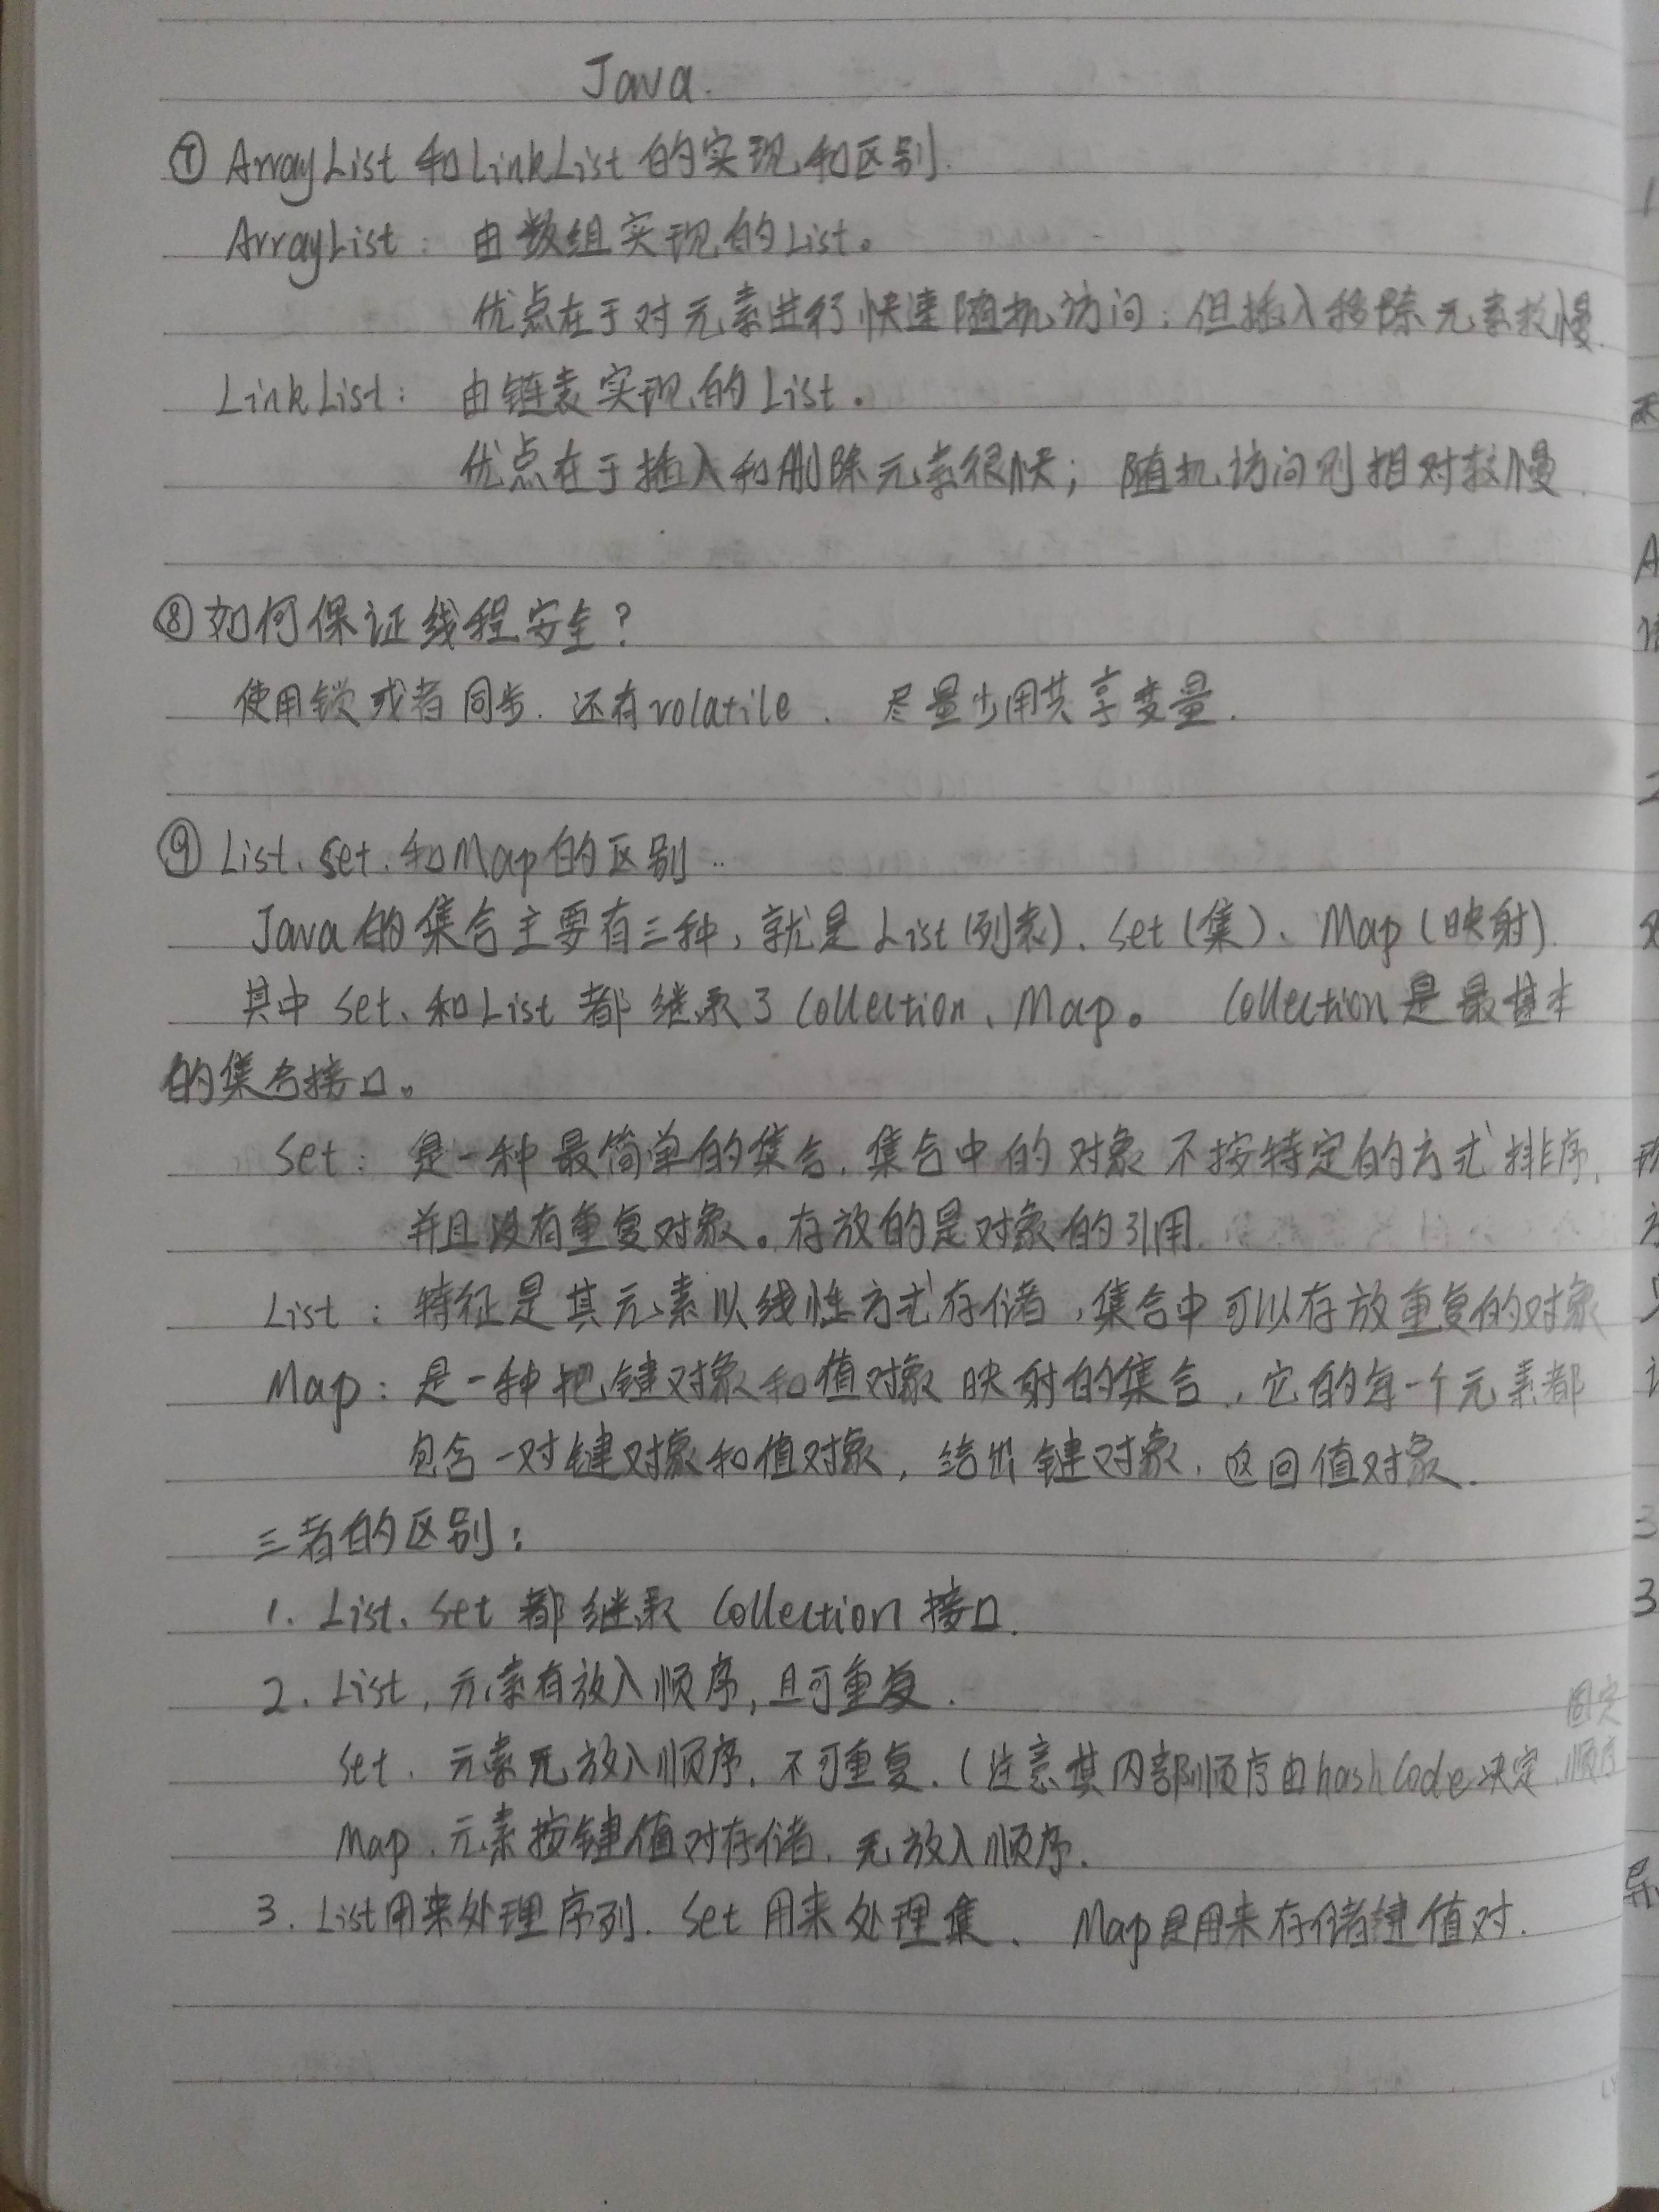 Java.
⑦ ArrayList 和LinkList 的实现和区别.
ArrayList: 由数组实现的List。
优点在于对元素进行快速随机访问;但插入移除元素较慢.
LinkList: 由链表实现的List.
优点在于插入和删除元素很快; 随机访问则相对较慢.
⑧如何保证线程安全?
使用锁或者同步. 还有volatile. 尽量少用共享变量.
⑨ List、set、和Map的区别..
Java的集合主要有三种,就是List(列表)、set(集)、Map(映射).
其中set、和List都继承了Collection、Map。 Collection是最基本
的集合接口。
set: 是一种最简单的集合.集合中的对象不按特定的方式排序,
并且没有重复对象。存放的是对象的引用.
List: 特征是其元素以线性方式存储,集合中可以存放重复的对象
Map: 是一种把键对象和值对象映射的集合,它的每一个元素都
包含一对键对象和值对象,给出键对象,返回值对象.
三者的区别:
1. List、set都继承 Collection接口.
2. List,元素有放入顺序,且可重复.
固定
set. 元素无放入顺序,不可重复.(注意其内部顺序由hashCode决定.顺序
Map.元素按键值对存储,无放入顺序.
3. List用来处理序列. set用来处理集、 Map是用来存储键值对.